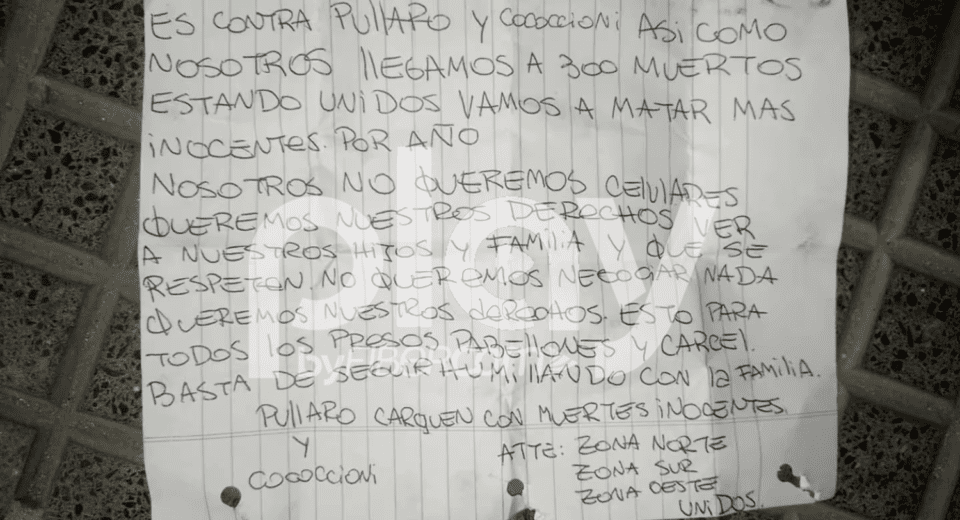 ES CONTRA PULLARO Y COCOCCIONI ASI COMO
NOSOTROS LLEGAMOS A 300 MUERTOS
ESTANDO UNIDOS VAMOS A MATAR MAS
INOCENTES. POR AÑO
NOSOTROS NO QUEREMOS CELULARES
QUEREMOS NUESTROS DERECHOS VER
A NUESTROS HIJOS Y FAMILIA Y QUE SE
RESPETEN. NO QUEREMOS NEGOCIAR NADA
QUEREMOS NUESTROS DERECHOS. ESTO PARA
TODOS LOS PRESOS PABELLONES Y CARCEL.
BASTA DE SEGUIR HUMILLANDO CON LA FAMILIA.
PULLARO CARGUEN CON MUERTES INOCENTES.
Y
COCOCCIONI
ATTE: ZONA NORTE
ZONA SUR
ZONA OESTE
UNIDOS.
play